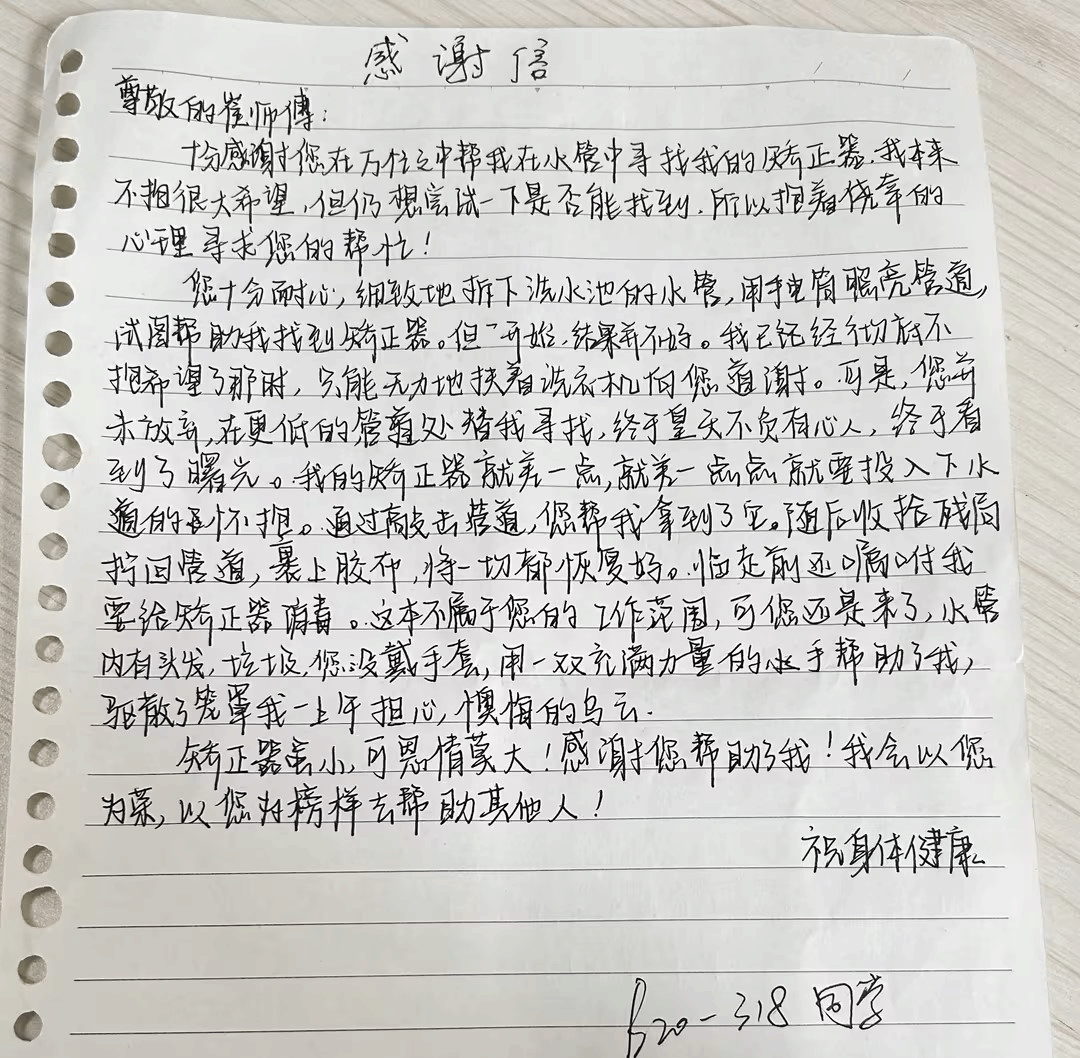 感谢信
尊敬的崔师傅：
十分感谢您在万忙之中帮我在水管中寻找我的矫正器，我本来
不抱很大希望，但仍想尝试一下是否能找到，所以抱着侥幸的
心理寻求您的帮忙！
您十分耐心，细致地拆下洗水池的水管，用手电筒照亮管道，
试图帮助我找到矫正器。但一开始，结果并不好。我已经
抱希望了那时，只能无力地扶着洗衣机向您道谢。可是，您并
未放弃，在更低的管道处替我寻找，终于皇天不负有心人，终于看
到了曙光。我的矫正器就差一点，就差一点点就要投入下水
道的怀抱。通过敲击管道，您帮我拿到了它。随后收拾残局
拧回管道，裹上胶布，将一切都恢复好。临走前还嘱咐我
要给矫正器消毒。这本不属于您的工作范围，可您还是来了，水管
内有头发，垃圾，您没戴手套，用一双充满力量的手帮助了我，
驱散了笼罩我一上午担心，懊悔的乌云.
矫正器虽小，可恩情莫大！感谢您帮助了我！我会以您
为荣，以您为榜样去帮助其他人！
祝身体健康
320-318 同学